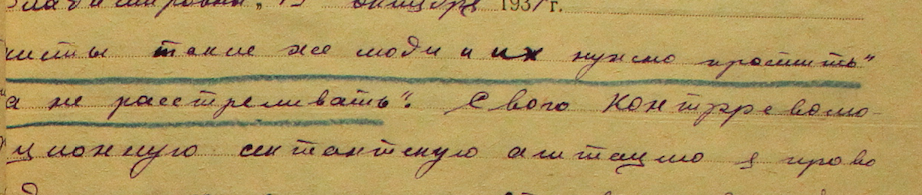 владимировны „13" октября 1937 г.
чисты такие же люди и их нужно простить"
а не расстреливать". Свою контрреволю-
ционную сектантскую агитацию я прово